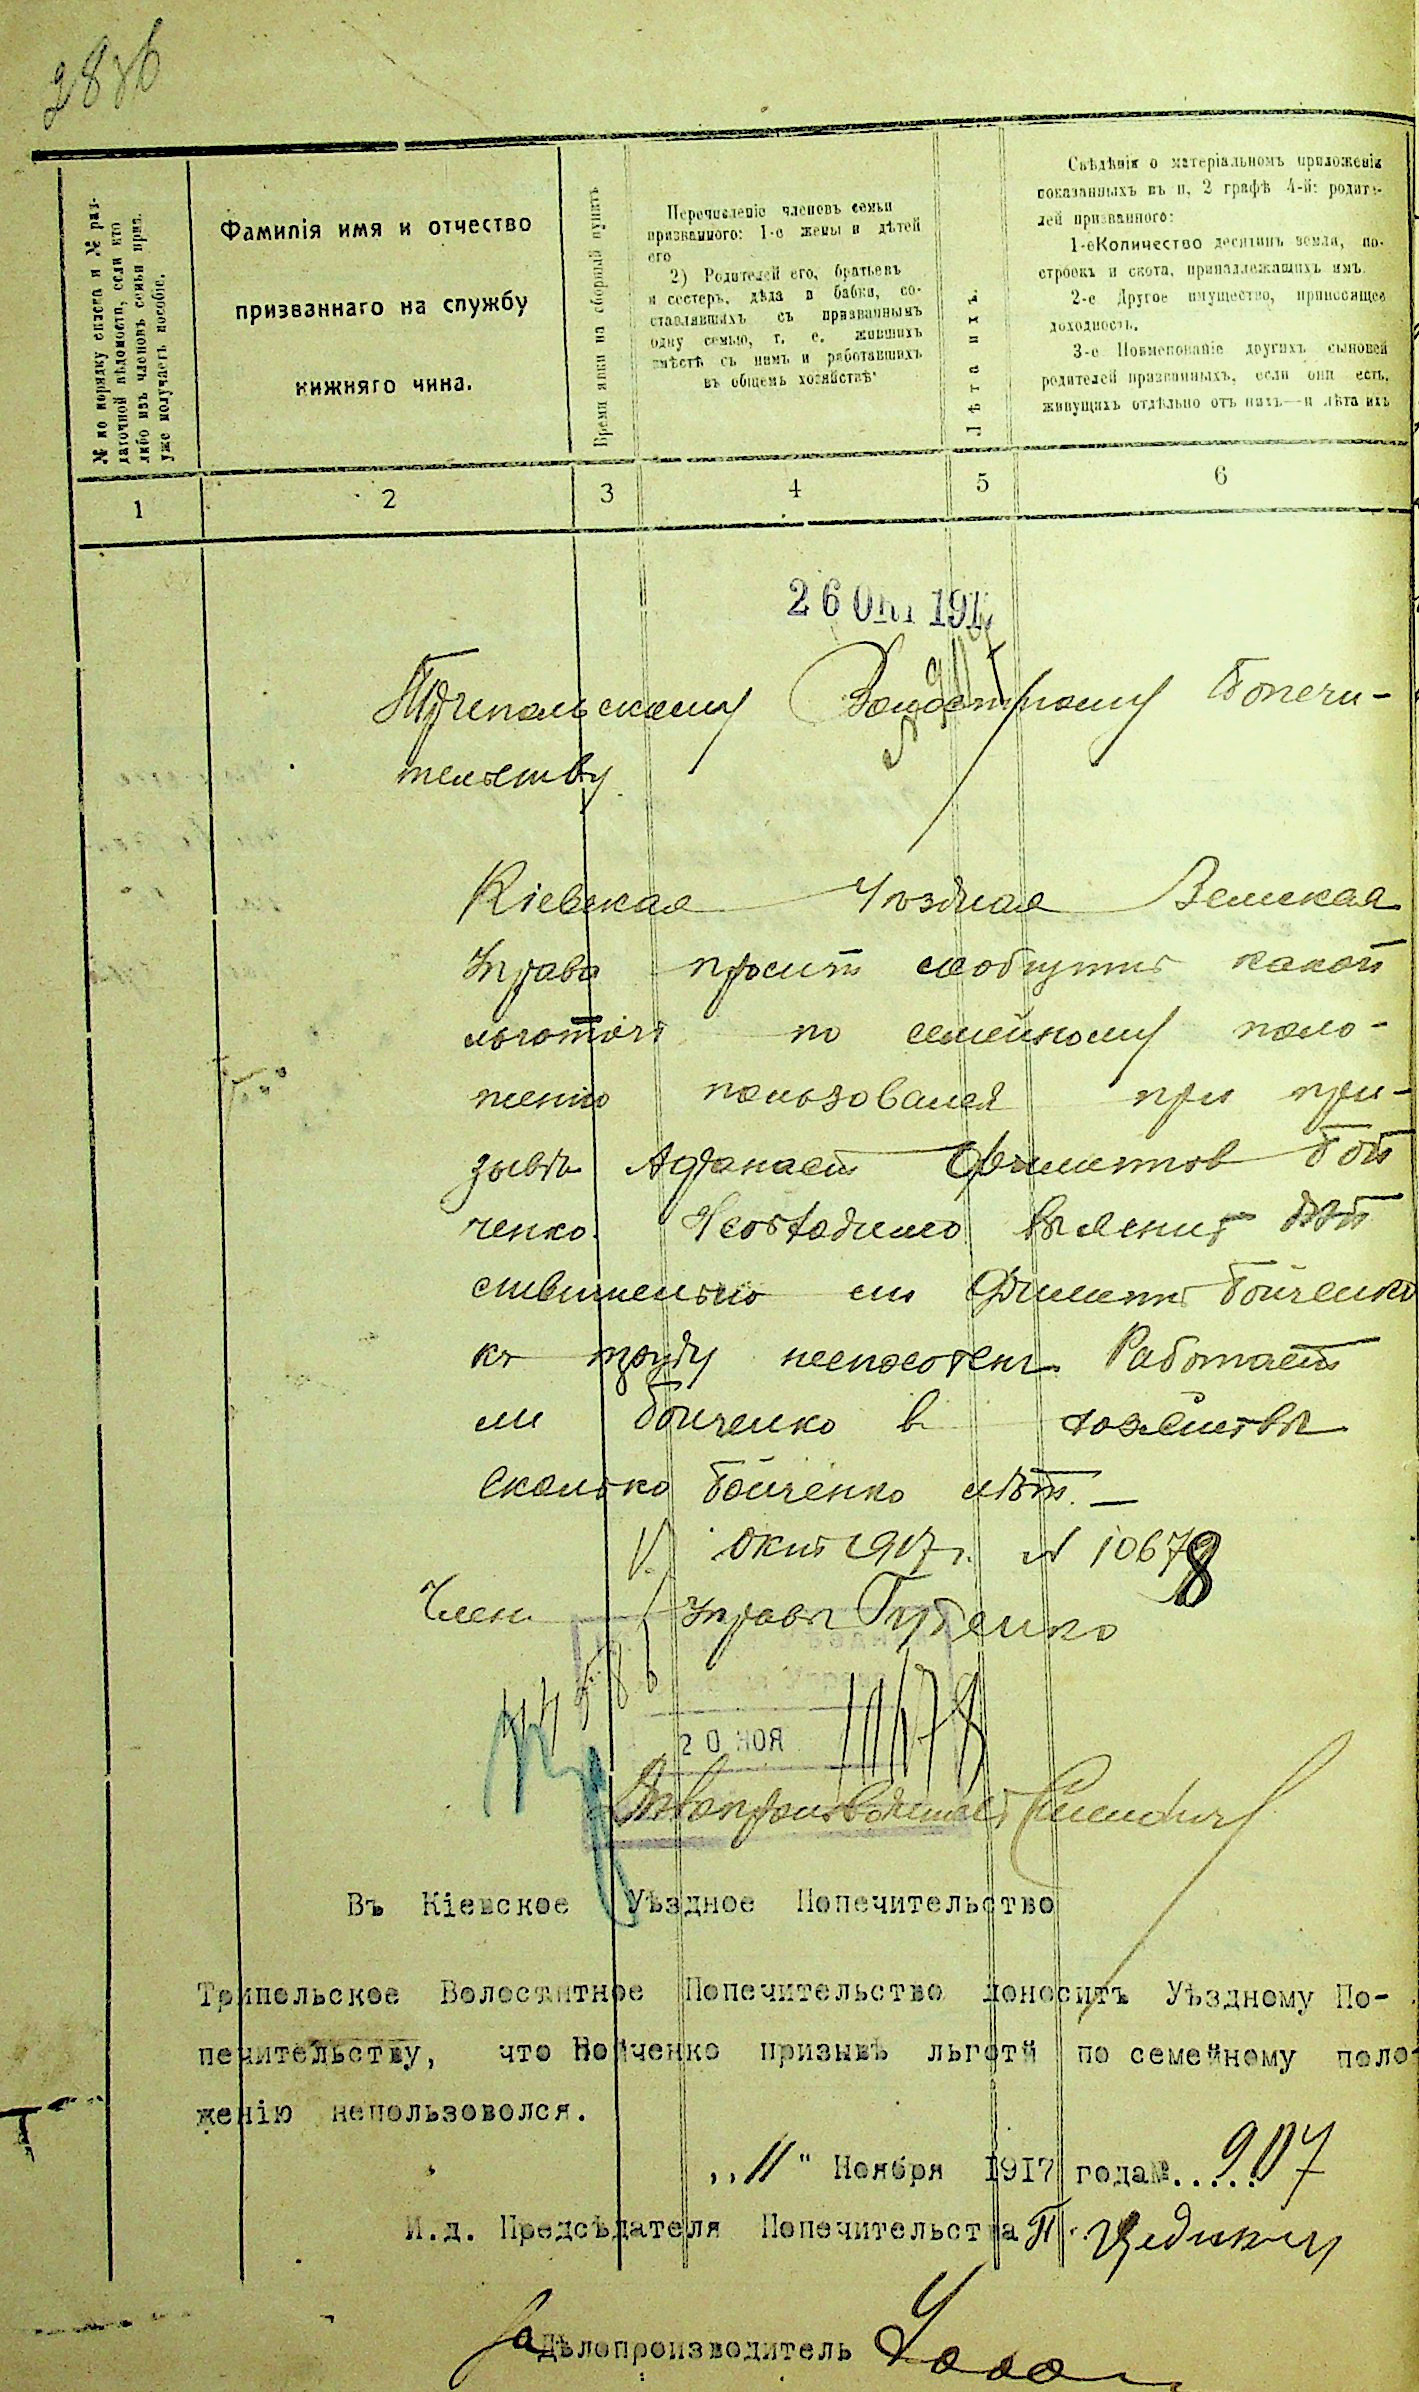 № по порядку списка и № раз-
даточной вѣдомости, если кто
либо изъ членовъ семьи приз.
уже получаетъ пособіе.
Фамилія имя и отчество
призваннаго на службу
нижняго чина.
Время явки на сборный пунктъ
Перечисленіе членовъ семьи
призванного: 1-е жены и дѣтей
его
2) Родителей его, братьевъ
и сестеръ, дѣда и бабки, со-
ставлявшихъ съ призваннымъ
одну семью, т. е. жившихъ
вмѣстѣ съ нимъ и работавшихъ
въ общемъ хозяйствѣ
Лѣта ихъ.
Свѣдѣнія о матеріальномъ приложеніи
показанныхъ въ п, 2 графѣ 4-й: родите-
лей призванного:
1-е Количество десятинъ земли, по-
строекъ и скота, принадлежащихъ имъ.
2-е Другое имущество, приносящее
доходность.
3-е Поименованіе другихъ сыновей
родителей призванныхъ, если они есть,
живущихъ отдѣльно отъ нихъ—и лѣта ихъ
1 2 3 4 5 6
26 Окт 191
Трипольскому Волостному Попечи-
тельству
Кіевская Уѣздная Земская
Управа просит сообщить какой
льготой по семейному поло-
женію пользовался при при-
зывѣ Афанасій Филиппов Бой
ченко. Необходимо выяснить дѣй
ствительно ли Филиппъ Бойченко
къ труду неспособенъ. Работает
ли Бойченко в хозяйствѣ
Сколько Бойченко лѣт. —
Окт 1917 г. № 10678
Член Управы
20 НОЯ
11678
Дѣлопроизводитель
Въ Кіевское Уѣздное Попечительство
Трипольское Волоститное Попечительство доноситъ Уѣздному По-
печительству, что Бойченко призывѣ льготй по семейному поло-
женію непользоволся.
,,11" Ноября 1917 года№.....907
И.д. Предсѣдателя Попечительства П.
За Дѣлопроизводитель